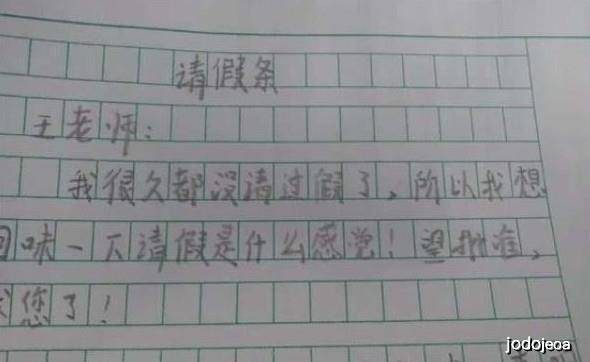 请假条
王老师：
我很久都没请过假了，所以我想
回味一下请假是什么感觉！望批准，
您了！
jodojeoa